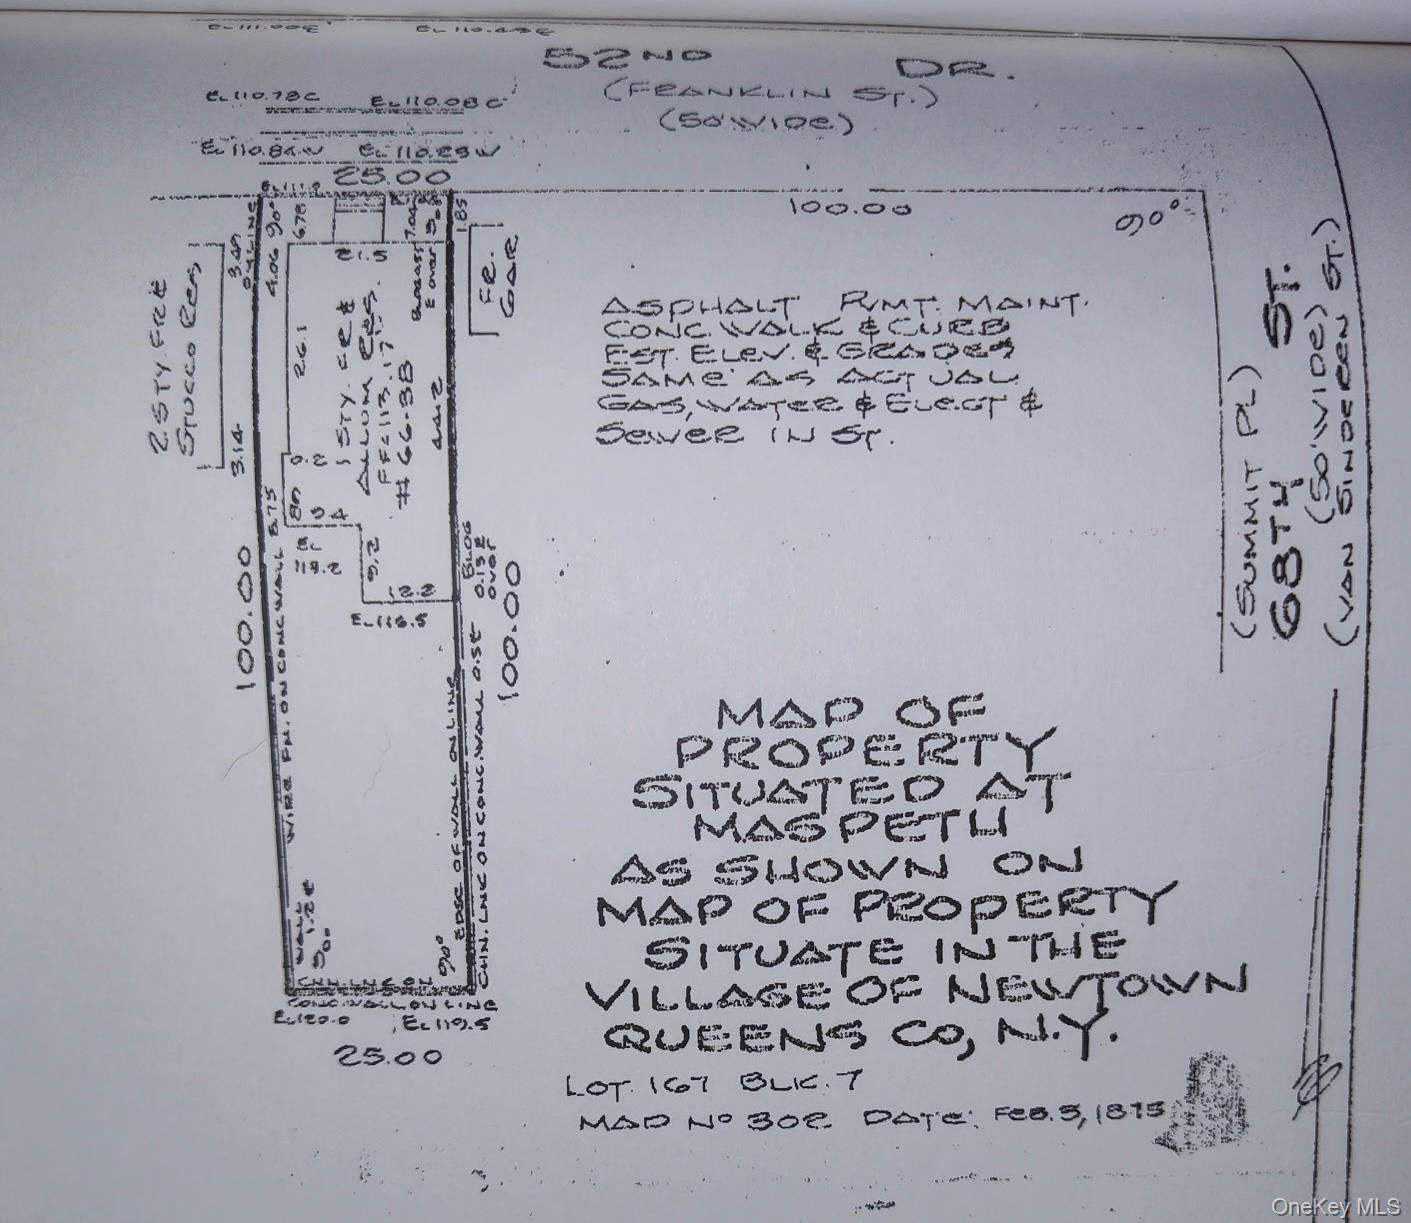 EL 111.00C
EL 110.43C
52ND DR.
(FRANKLIN ST.)
(50' WIDE)
EL 110.78C
EL 110.08C
EL 110.84W
EL 110.23W
25.00
100.00
90°
1.85
7.04
6.78
90°
4.06
3.49
21.5
FR.
GAR
2 STY. FR &
STUCCO RES.
26.1
1 STY. FR &
ALLUM RES.
FF=113.17
# 66-38
44.2
ASPHALT PVMT. MAINT.
CONC. WALK & CURB
EST. ELEV. & GRADES
SAME AS ACTUAL
GAS, WATER & ELECT &
SEWER IN ST.
(SUMMIT PL)
68TH ST.
(50' WIDE)
(VAN SINDEREN ST.)
3.14
0.2
9.4
9.2
12.2
EL 116.5
BLDG
0.13E
OVER
100.00
100.00
WIRE FN. ON CONC WALL
EDGE OF WALL ON LINE
CHN. LNK ON CONC. WALL 0.5E
WALL
1.2E
90°
90°
CHN. LNK ON
CONC. WALL ON LINE
EL 120.0
EL 119.5
25.00
MAP OF
PROPERTY
SITUATED AT
MASPETH
AS SHOWN ON
MAP OF PROPERTY
SITUATE IN THE
VILLAGE OF NEWTOWN
QUEENS CO, N.Y.
LOT. 167 BLK. 7
MAP No 302 DATE: FEB. 3, 1875
OneKey MLS